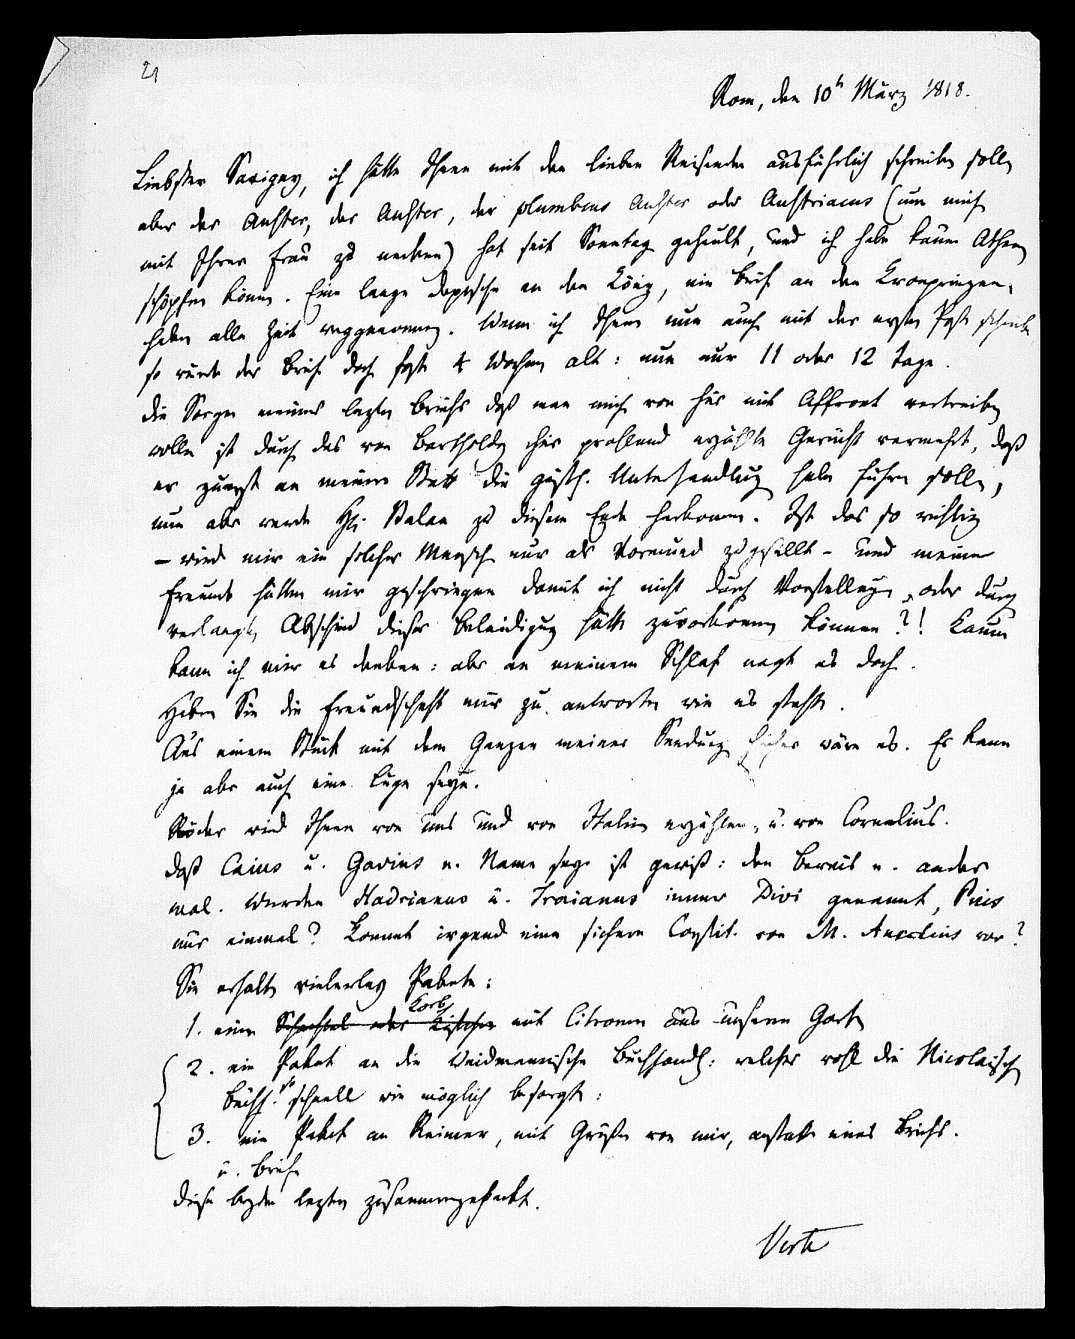 21
Rom, den 10ᵗ März 1818.
Liebster Savigny, ich hätte Ihnen mit den lieben Reisenden ausführlich schreiben sollen
aber der Auster, der Auster, der plumbeus Auster oder Austriacus (um mich
mit Ihrer Frau zu necken) hat seit Sonntag geheult, und ich habe kaum Athem
schöpfen können. Eine lange Depesche an den König, ein Brief an den Kronprinzen,
haben alle Zeit weggenommen. Wenn ich Ihnen nun auch mit der ersten Post schriebe
so würde der Brief doch fast 4 Wochen alt: nun nur 11 oder 12 Tage.
Die Sorgen meines lezten Briefs daß man mich von hier mit Affront vertreiben
wolle ist durch das von Bartholdy hier prahlend erzählte Gerücht vermehrt, daß
er zuerst an meiner Statt die geistl. Unterhandlung habe führen sollen,
nun aber werde Balan zu diesem Ende herkommen. Ist das so richtig
– wird mir ein solcher Mensch nur als Vormund zugesellt – und meine
Freunde hätten mir geschwiegen damit ich nicht durch Vorstellungen oder durch
verlangten Abschied dieser Beleidigung hätte zuvorkommen können?! Kaum
kann ich mir es denken: aber an meinem Schlaf nagt es doch.
Haben Sie die Freundschaft mir zu antworten wie es steht.
Aus einem Stück mit dem Ganzen meiner Sendung hieher wäre es. Es kann
ja aber auch eine Lüge seyn.
Röder wird Ihnen von uns und von Italien erzählen, u. von Cornelius.
Daß Caius u. Gavius e. Name sey ist gewiß: den Beweis e. ander
mal. Wurden Hadrianus u. Traianus immer Divi genannt, Pius
nur einmal? Kommt irgend eine sichere Constit. von M. Aurelius vor?
Sie erhalten vielerley Pakete:
1. einen Schachtel oder Kistchen Korb mit Citronen aus unserm Garten
2. ein Paket an die Weidmannische Buchhandl: welches wohl die Nicolaische
Buchh. so schnell wie möglich besorgt:
3. ein Paket an Reimer, mit Grüßen von mir, anstatt eines Briefs.
u. Briefe
diese beyden lezten zusammengepackt.
Verte